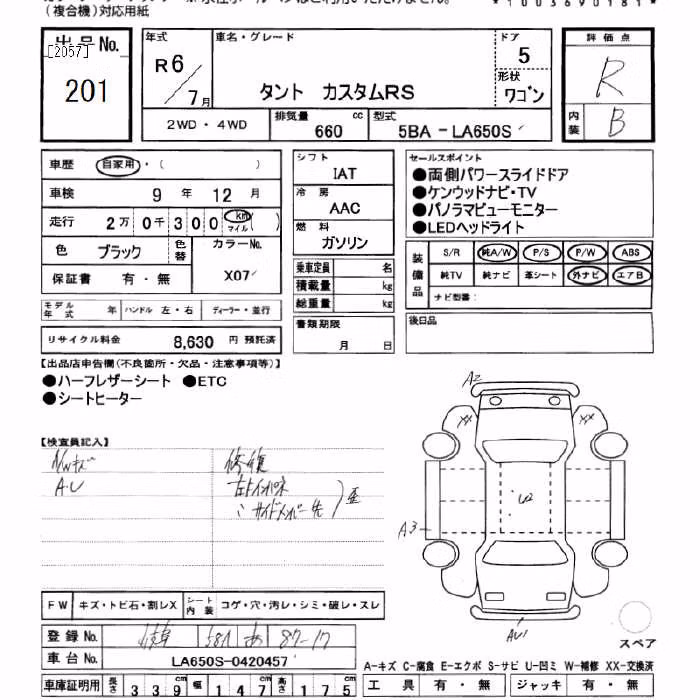 (複合機)対応用紙
*1003690181*
出品No.
[2057]
201
年式
R6/7月
車名・グレード
タント カスタムRS
ドア
5
形状
ワゴン
評価点
R
内装
B
2WD・4WD
排気量
660
cc
型式
5BA-LA650S
車歴 自家用・( )
車検 9年 12月
走行 2万 0千 300 km マイル ( )
色 ブラック 色替 カラーNo.
保証書 有・無 X07
モデル年式 年 ハンドル 左・右 ディーラー・並行
リサイクル料金 8,630 円 預託済
シフト
IAT
冷房
AAC
燃料
ガソリン
乗車定員 名
積載量 kg
総重量 kg
書類期限
月 日
セールスポイント
●両側パワースライドドア
●ケンウッドナビ・TV
●パノラマビューモニター
●LEDヘッドライト
装備品
S/R 純A/W P/S P/W ABS
純TV 純ナビ 革シート 外ナビ エアB
ナビ型番:
後日品
【出品店申告欄(不良箇所・欠品・注意事項等)】
●ハーフレザーシート ●ETC
●シートヒーター
【検査員記入】
AU
修復
左トインパネ
サイドメンバー先
歪
A2
XX
XX
U2
A3
AU1
スペア
FW キズ・トビ石・割レX シート内装 コゲ・穴・汚レ・シミ・破レ・スレ
登録No. 岐阜 581 あ 87-17
車台No. LA650S-0420457
車庫証明用 長さ 339cm 幅 147cm 高さ 175cm
A-キズ C-腐食 E-エクボ S-サビ U-凹ミ W-補修 XX-交換済
工具 有・無 ジャッキ 有・無